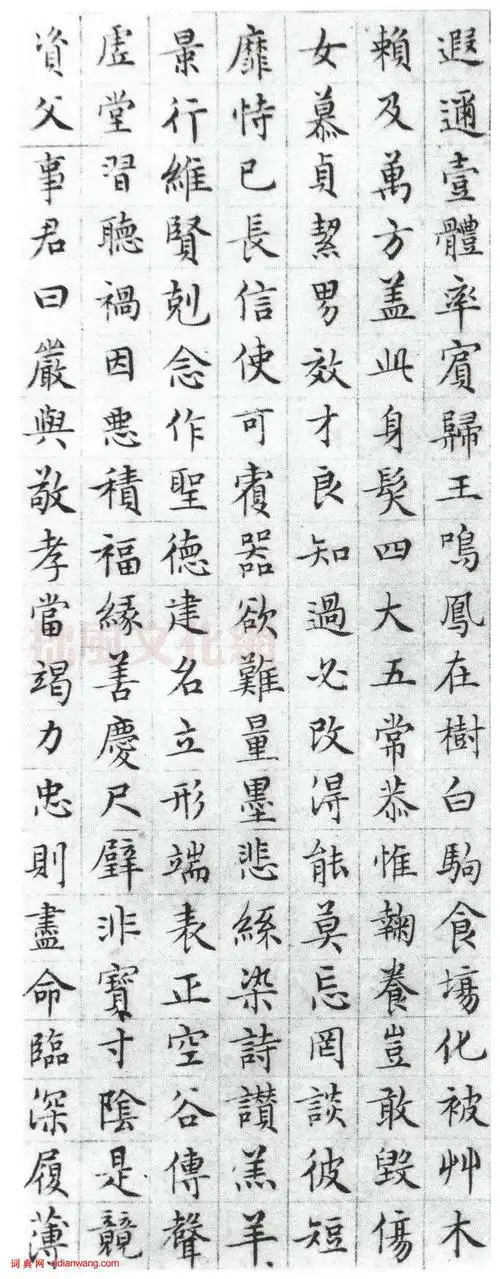 遐邇壹體率賓歸王鳴鳳在樹白駒食場化被艸木
賴及萬方盖此身髮四大五常恭惟鞠養豈敢毀傷
女慕貞絜男效才良知過必改得能莫忘罔談彼短
靡恃已長信使可覆器欲難量墨悲絲染詩讃羔羊
景行維賢剋念作聖德建名立形端表正空谷傳聲
虛堂習聽禍因悪積福緣善慶尺璧非寶寸陰是競
資父事君曰嚴與敬孝當竭力忠則盡命臨深履薄
拙風文化網
词典网:cidianwang.com